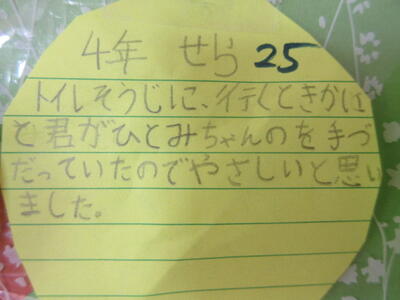 4年 せら 25
トイレそうじに、行くときかい
と君がひとみちゃんのを手づ
だっていたのでやさしいと思い
ました。